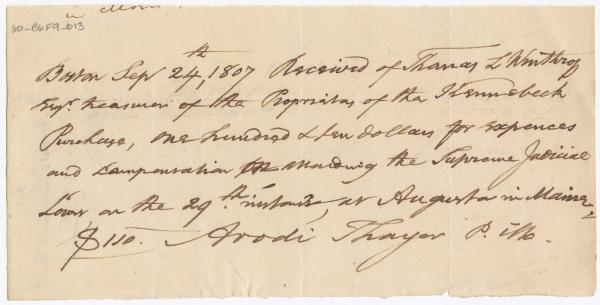 60-B6F9-013
Boston Sepr 24th, 1807 Received of Thomas L Winthrop
Esqr. treasurer of the Proprietors of the Kennebeck
Purchase, one hundred & ten dollars for expences
and compensation attending the Supreme Judicial
Court on the 29th. instant, at Augusta in Maine,
$110. Arodi Thayer